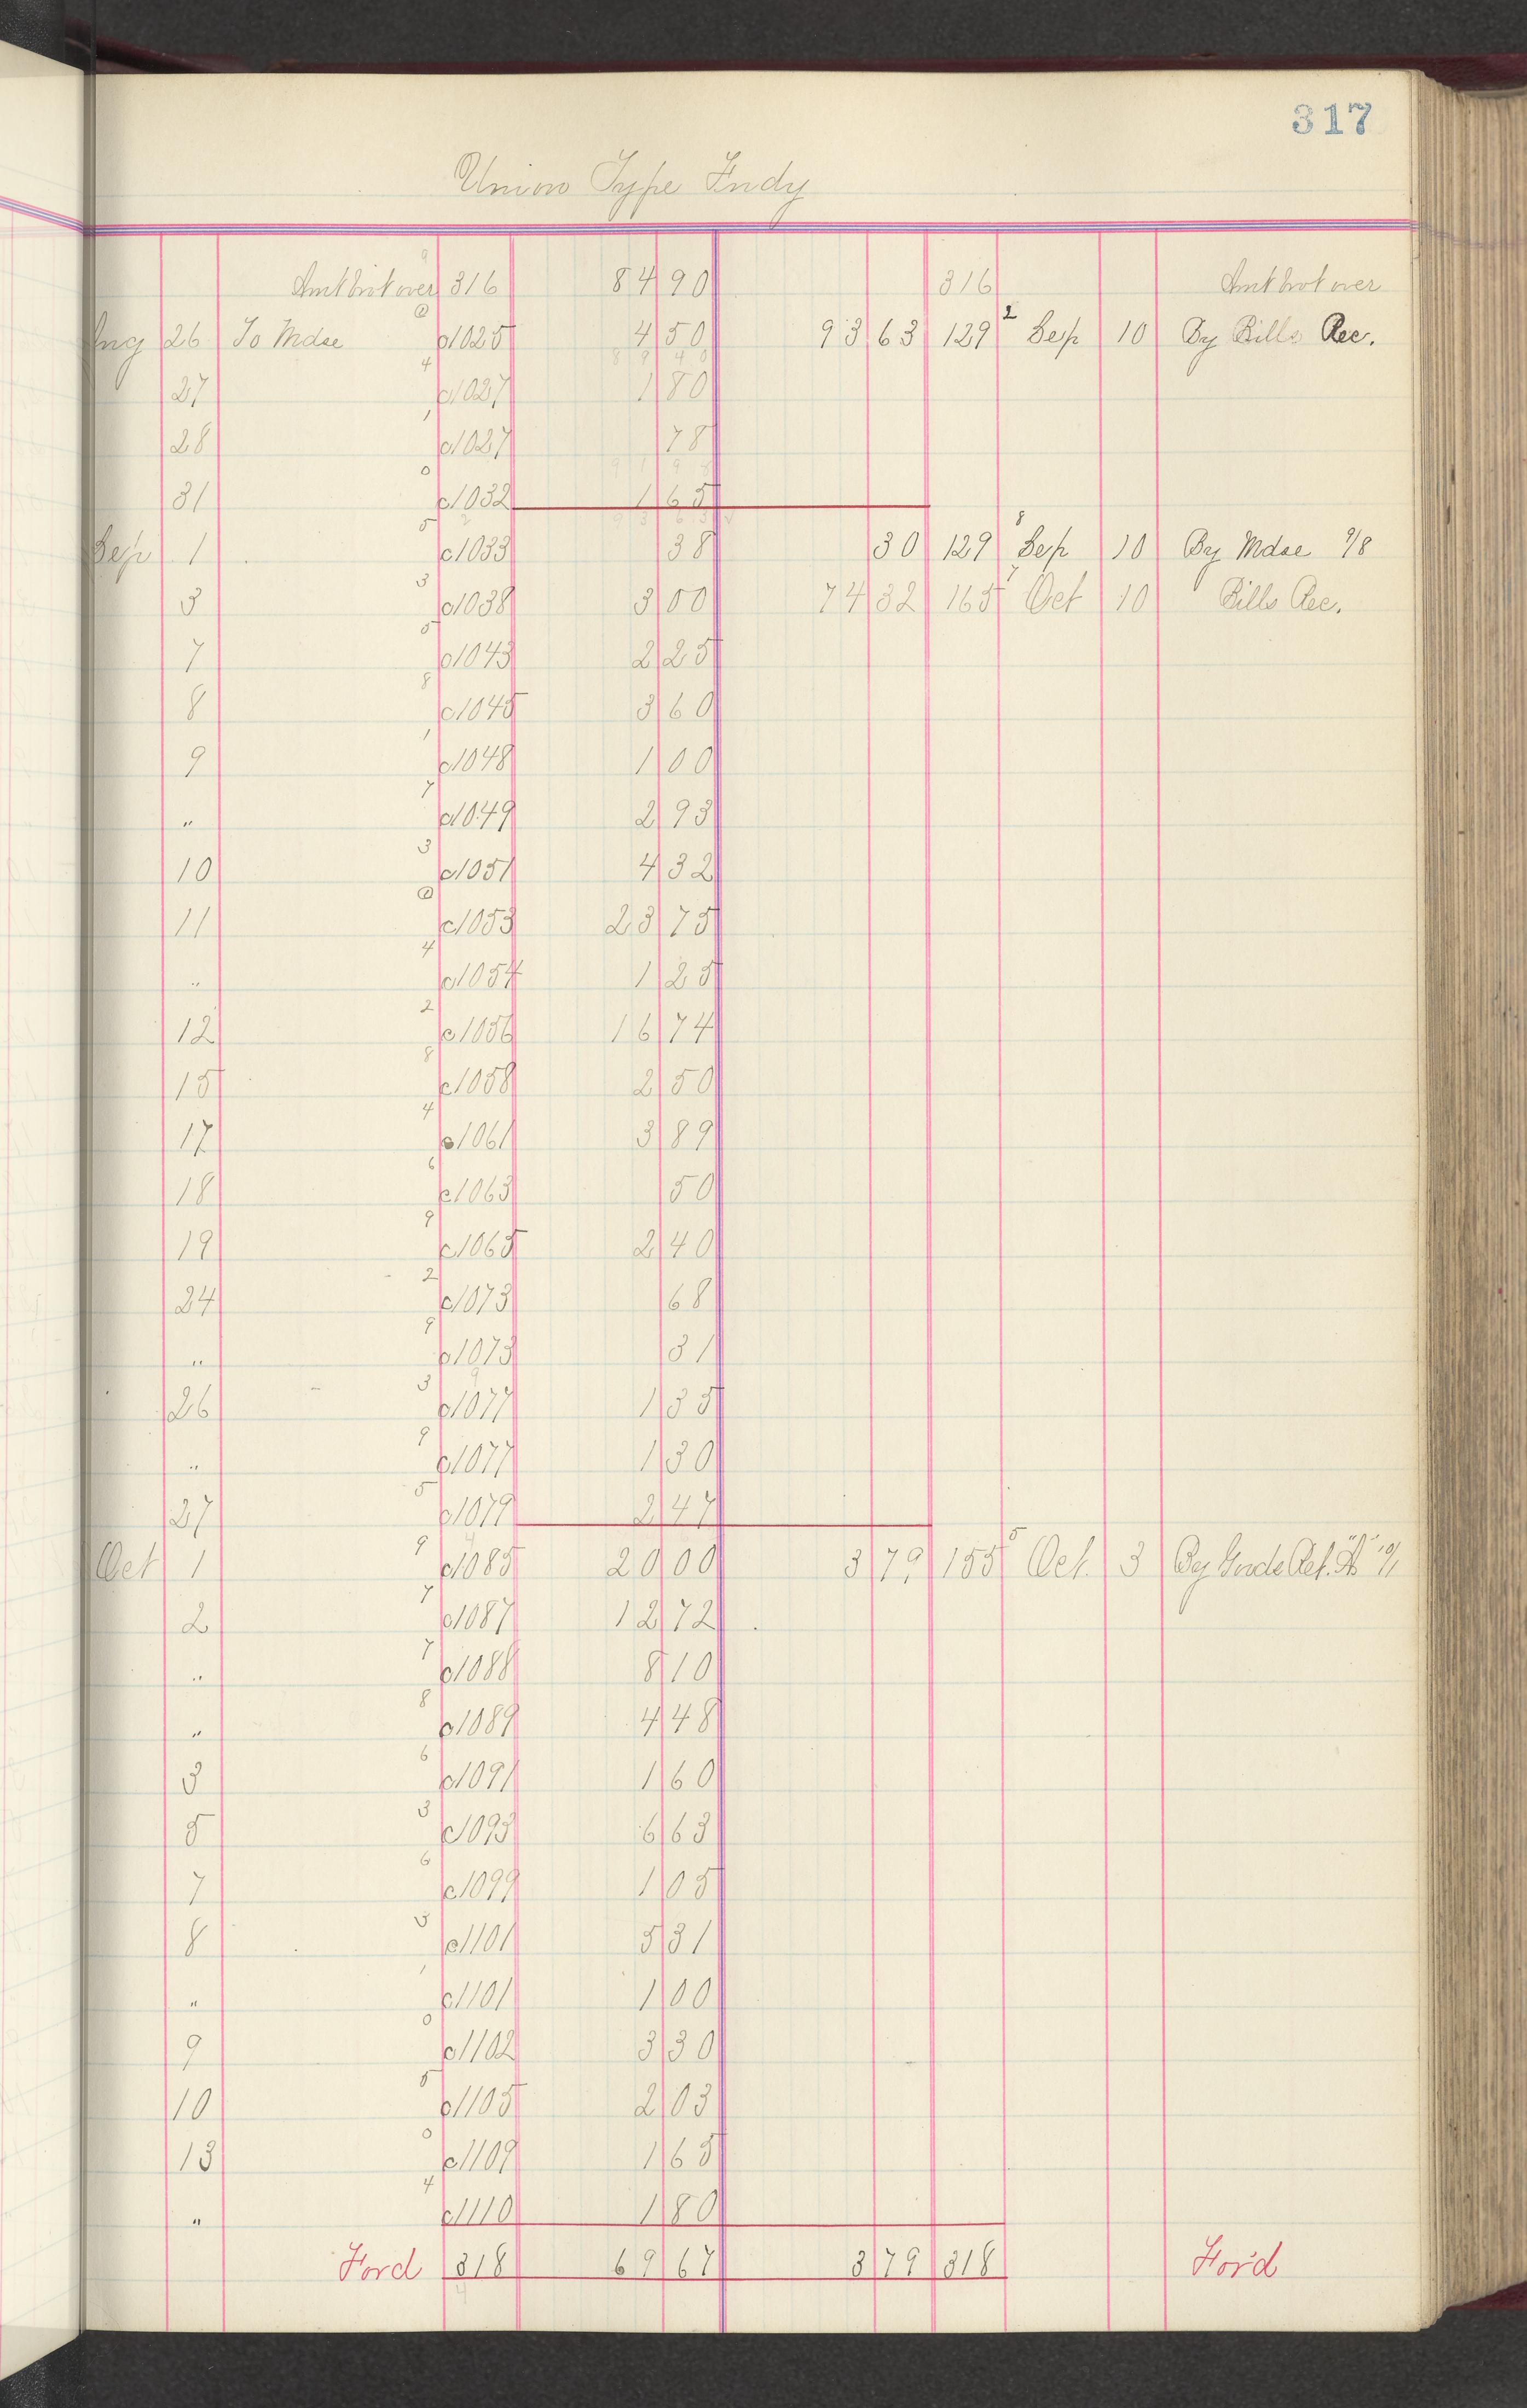 317
Union Type Fndy
Amt brot over 316 84 90 316 Amt brot over
Aug 26 To Mdse c1025 4 50 93 63 129 2 Sep 10 By Bills Rec.
27 4 c1027 1 80
28 1 c1027 78
31 0 c1032 1 65
Sep 1 5 c1033 38 30 129 8 Sep 10 By Mdse 9/8
3 3 c1038 3 00 74 32 165 7 Oct 10 Bills Rec.
7 5 c1043 2 25
8 8 c1045 3 60
9 1 c1048 1 00
" 7 c1049 2 93
10 3 c1051 4 32
11 c1053 23 75
" 4 c1054 1 25
12 2 c1056 16 74
15 8 c1058 2 50
17 4 c1061 3 89
18 6 c1063 50
19 9 c1065 2 40
24 2 c1073 68
" 9 c1073 31
26 3 c1077 1 35
" 9 c1077 1 30
27 5 c1079 2 47
Oct 1 9 c1085 20 00 3 79 155 5 Oct. 3 By Goods Ret. 10/1
2 7 c1087 12 72
" 7 c1088 8 10
" 8 c1089 4 48
3 6 c1091 1 60
5 3 c1093 6 63
7 6 c1099 1 05
8 3 c1101 5 31
" 1 c1101 1 00
9 0 c1102 3 30
10 5 c1105 2 03
13 0 c1109 1 65
" 4 c1110 1 80
Ford 318 69 67 3 79 318 For'd